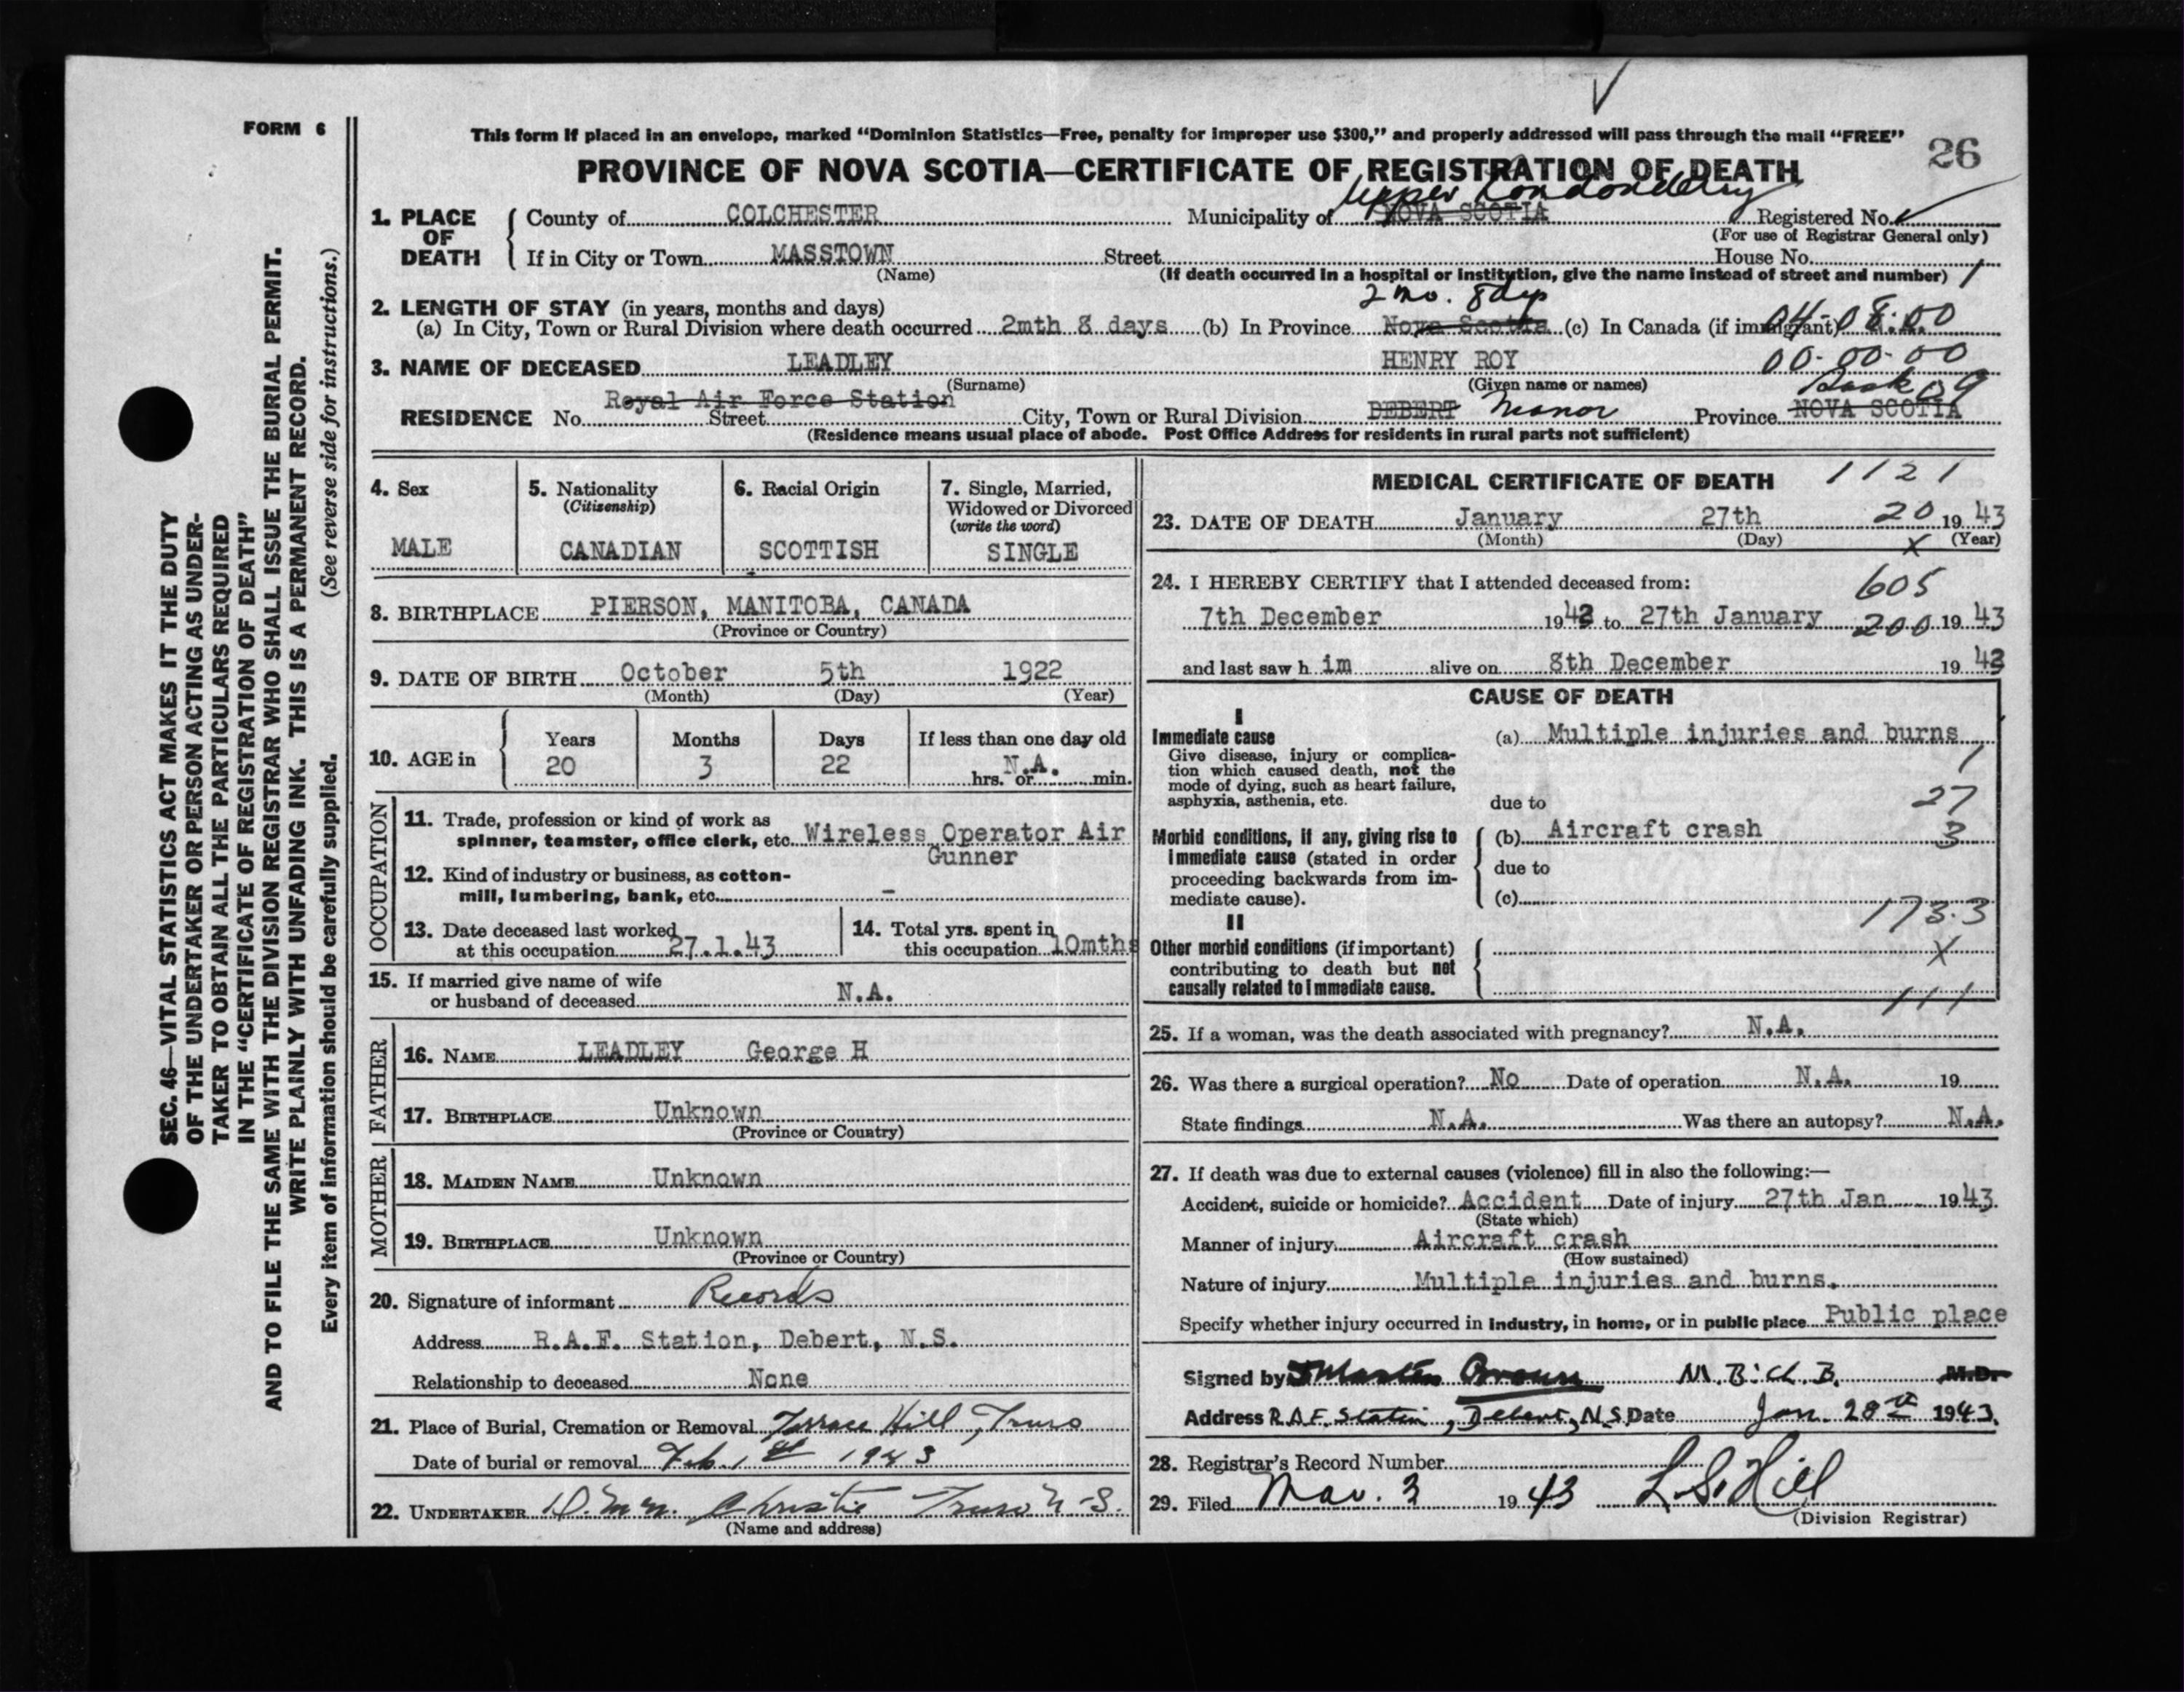 FORM 6
This form if placed in an envelope, marked "Dominion Statistics—Free, penalty for improper use $300," and properly addressed will pass through the mail "FREE"
26
PROVINCE OF NOVA SCOTIA—CERTIFICATE OF REGISTRATION OF DEATH
Upper Londonderry
1. PLACE OF DEATH
County of COLCHESTER Municipality of NOVA SCOTIA Registered No.
(For use of Registrar General only)
If in City or Town MASSTOWN Street House No.
(Name) (If death occurred in a hospital or institution, give the name instead of street and number) 1
2. LENGTH OF STAY (in years, months and days) 2 mo. 8 dys
(a) In City, Town or Rural Division where death occurred 2mth 8 days (b) In Province Nova Scotia (c) In Canada (if immigrant) 04-08.00
3. NAME OF DECEASED LEADLEY HENRY ROY 00-00-00
(Surname) (Given name or names) Sask 09
Royal Air Force Station
RESIDENCE No. Street City, Town or Rural Division DEBERT Manor Province NOVA SCOTIA
(Residence means usual place of abode. Post Office Address for residents in rural parts not sufficient)
4. Sex
MALE
5. Nationality
(Citizenship)
CANADIAN
6. Racial Origin
SCOTTISH
7. Single, Married,
Widowed or Divorced
(write the word)
SINGLE
8. BIRTHPLACE PIERSON, MANITOBA, CANADA
(Province or Country)
9. DATE OF BIRTH October 5th 1922
(Month) (Day) (Year)
10. AGE in
Years Months Days If less than one day old
20 3 22 N.A.
hrs. or min.
OCCUPATION
11. Trade, profession or kind of work as
spinner, teamster, office clerk, etc. Wireless Operator Air
Gunner
12. Kind of industry or business, as cotton-
mill, lumbering, bank, etc. -
13. Date deceased last worked
at this occupation 27.1.43
14. Total yrs. spent in
this occupation 10mths
15. If married give name of wife
or husband of deceased N.A.
FATHER
16. NAME LEADLEY George H
17. BIRTHPLACE Unknown
(Province or Country)
MOTHER
18. MAIDEN NAME Unknown
19. BIRTHPLACE Unknown
(Province or Country)
20. Signature of informant Records
Address R.A.F. Station, Debert, N.S.
Relationship to deceased None
21. Place of Burial, Cremation or Removal Terrace Hill, Truro
Date of burial or removal Feb. 1st 1943
22. UNDERTAKER Christie Truro N-S.
(Name and address)
MEDICAL CERTIFICATE OF DEATH 1121
23. DATE OF DEATH January 27th 20 1943
(Month) (Day) x (Year)
24. I HEREBY CERTIFY that I attended deceased from: 605
7th December 1942 to 27th January 200 1943
and last saw h im alive on 8th December 1942
CAUSE OF DEATH
I
Immediate cause
Give disease, injury or complica-
tion which caused death, not the
mode of dying, such as heart failure,
asphyxia, asthenia, etc.
(a) Multiple injuries and burns
1
due to 27
Morbid conditions, if any, giving rise to
immediate cause (stated in order
proceeding backwards from im-
mediate cause).
(b) Aircraft crash 3
due to
(c)
173.3
II
Other morbid conditions (if important)
contributing to death but not
causally related to immediate cause.
X
111
25. If a woman, was the death associated with pregnancy? N.A.
26. Was there a surgical operation? No Date of operation N.A. 19
State findings N.A. Was there an autopsy? N.A.
27. If death was due to external causes (violence) fill in also the following:—
Accident, suicide or homicide? Accident Date of injury 27th Jan 1943.
(State which)
Manner of injury Aircraft crash
(How sustained)
Nature of injury Multiple injuries and burns.
Specify whether injury occurred in industry, in home, or in public place Public place
Signed by Brown M.B.Ch.B. M.D.
Address R.A.F. Station, Debert, N.S. Date Jan. 28th 1943.
28. Registrar's Record Number
29. Filed Mar. 3 1943 L. S. Hill
(Division Registrar)
SEC. 46—VITAL STATISTICS ACT MAKES IT THE DUTY
OF THE UNDERTAKER OR PERSON ACTING AS UNDER-
TAKER TO OBTAIN ALL THE PARTICULARS REQUIRED
IN THE "CERTIFICATE OF REGISTRATION OF DEATH"
AND TO FILE THE SAME WITH THE DIVISION REGISTRAR WHO SHALL ISSUE THE BURIAL PERMIT.
WRITE PLAINLY WITH UNFADING INK. THIS IS A PERMANENT RECORD.
Every item of information should be carefully supplied. (See reverse side for instructions.)